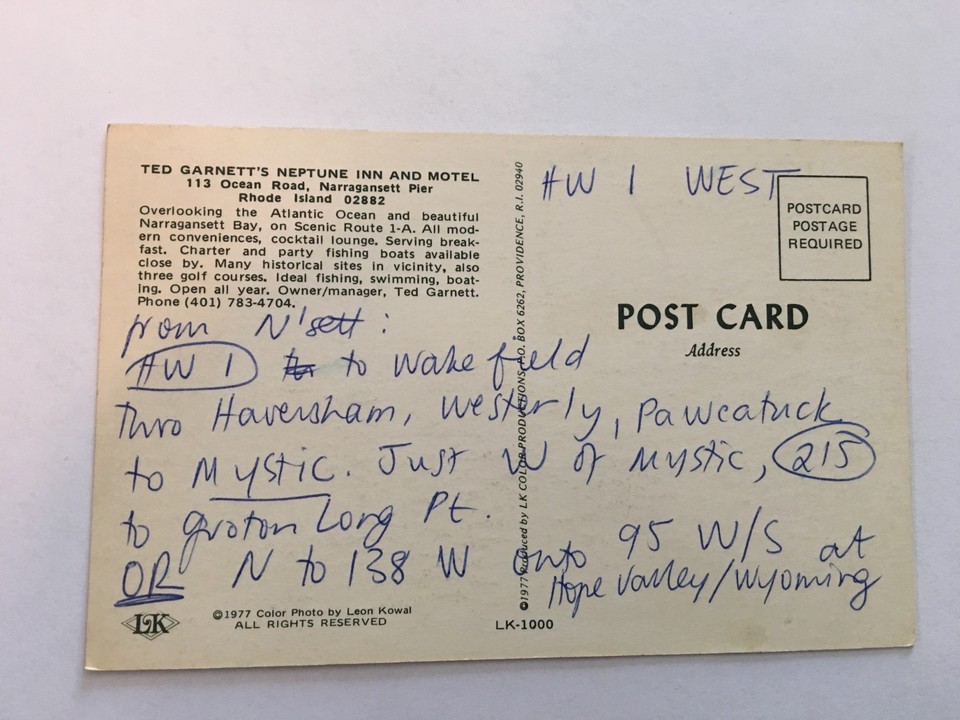 TED GARNETT'S NEPTUNE INN AND MOTEL
113 Ocean Road, Narragansett Pier
Rhode Island 02882
Overlooking the Atlantic Ocean and beautiful
Narragansett Bay, on Scenic Route 1-A. All mod-
ern conveniences, cocktail lounge. Serving break-
fast. Charter and party fishing boats available
close by. Many historical sites in vicinity, also
three golf courses. Ideal fishing, swimming, boat-
ing. Open all year. Owner/manager, Ted Garnett.
Phone (401) 783-4704.
HW 1 WEST
POSTCARD
POSTAGE
REQUIRED
POST CARD
Address
from N'sett:
HW 1 to Wakefield
thro Haversham, Westerly, Pawcatuck
to Mystic. Just W of Mystic, 215
to Groton Long Pt.
OR N to 138 W onto 95 W/S at
Hope Valley/Wyoming
©1977 Produced by LK COLOR PRODUCTIONS, P.O. BOX 6262, PROVIDENCE, R.I. 02940
LK
©1977 Color Photo by Leon Kowal
ALL RIGHTS RESERVED
LK-1000